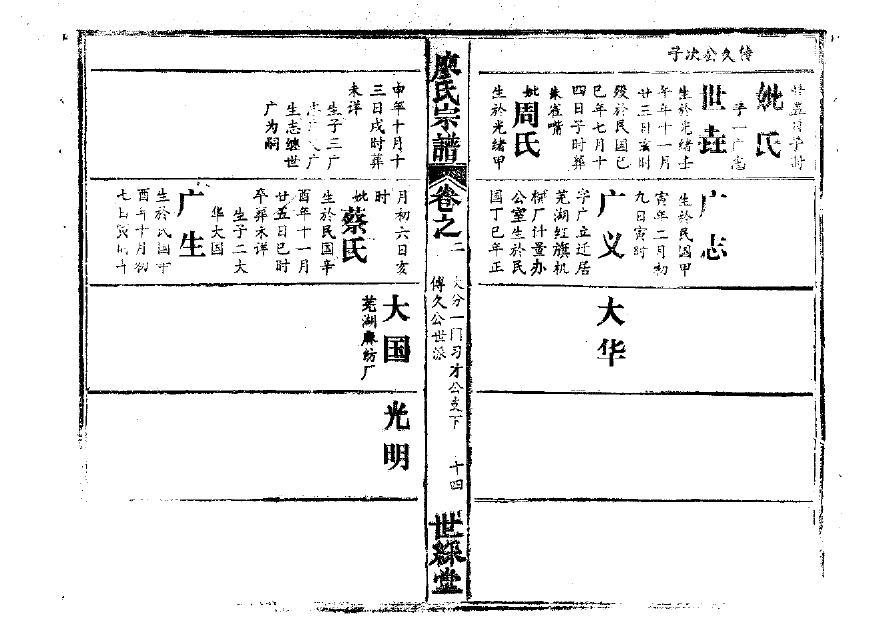 傅久公次子
廿五日子时
妣氏
子一广志
世垚
生於光绪壬
午年十一月
廿三日亥时
殁於民国己
巳年七月十
四日子时葬
朱雀嘴
妣周氏
生於光绪甲
广志
生於民国甲
寅年二月初
九日寅时
广义
字广立迁居
芜湖红旗机
械厂计量办
公室生於民
国丁巳年正
大华
廖氏宗譜
卷之二
大分一门习才公支下
傅久公世派
十四
世綵堂
申年十月十
三日戌时葬
未详
生子三广
志广义广
生志继世
广为嗣
月初六日亥
时
妣蔡氏
生於民国辛
酉年十一月
廿五日巳时
卒葬未详
生子二大
华大国
广生
生於民国辛
酉年十月初
七日寅时
大国
芜湖麻纺厂
光明